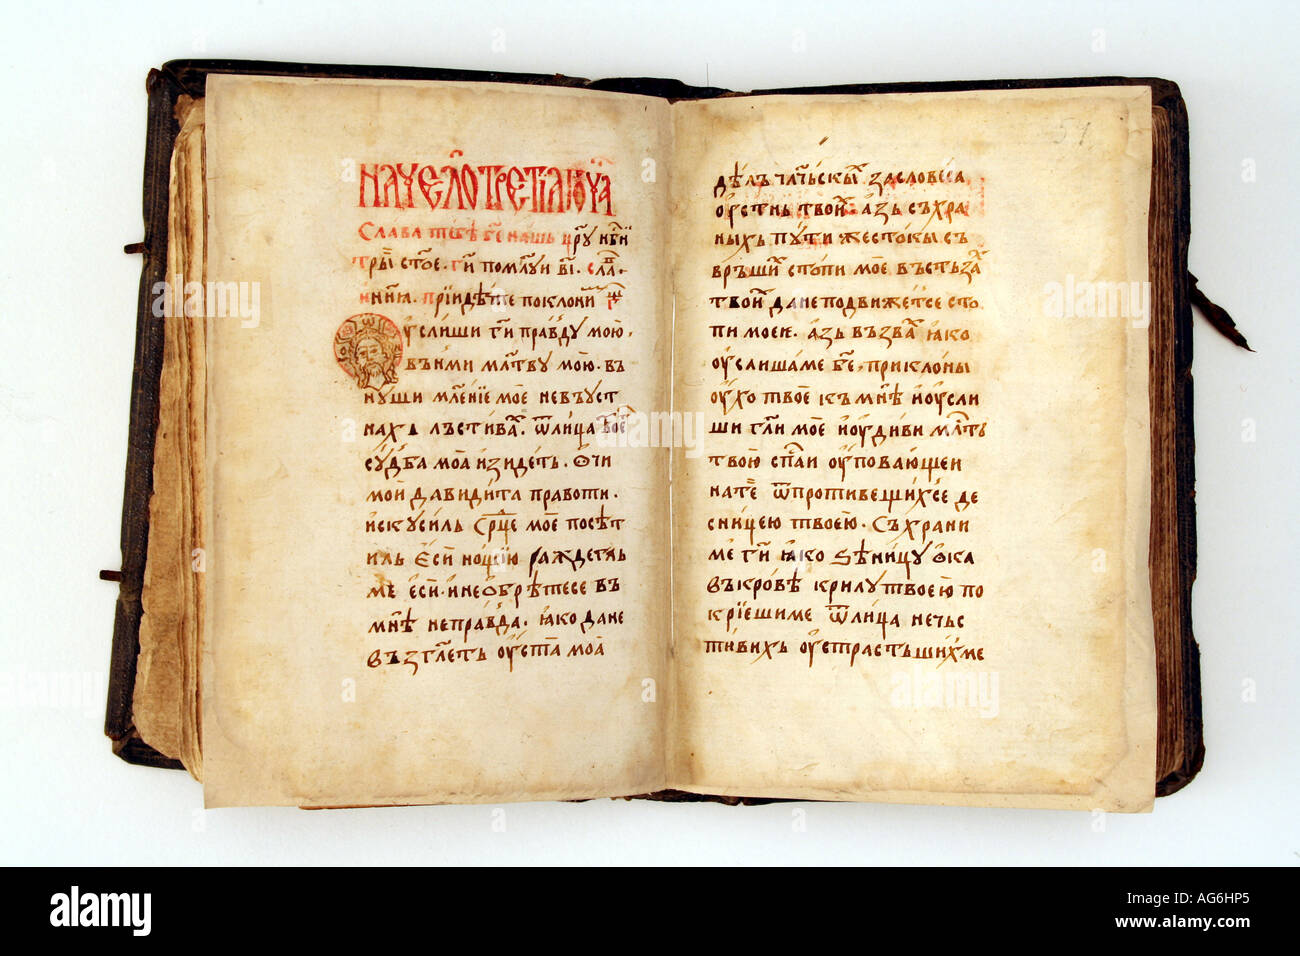 НАЧЕЛО ТРЕТІАГО ЧА҃
Слава тебѣ бж҃е нашь цр҃у нб҃нїи
трⷭ҇ьі ст҃ое. гⷭ҇и помлⷹи в҃і. слаⷡ҇.
инн҃ꙗ. прїидѣте поклони
ѹслиши гⷭ҇и правду мою.
въньми млт҃ву мою. въ
нуши млⷧ҇енїе мое невъуст
нахь лъстивⷯа. ѿлица твоеⷢ҇
судба моꙗ изидеть. ѻчи
мои давидита правоти.
искусиль ср҃це мое посѣт
иль еси нощїю раждегль
ме еси. и не ѻбрѣтесе въ
мнѣ неправда. ꙗко да не
възглеть ѹста моꙗ
51
дѣлъ чл҃чьскыⷯ за словеса
ѹстнь твоиⷯ азь съхра
ныхь пути жестокы съ
връши стопи мое въ стьзаⷯ
твоиⷯ да не подвижетсе сто
пи моеи. азь възваⷯ ꙗко
ѹслиша ме бж҃е, приклоны
ѹхо твое къ мнѣ и ѹсли
ши гл҃и мое и ѹдиви млⷭ҇ть
твою сп҃саи ѹповающеи
на те ѿ противещихсе де
сницею твоею. Съхрани
ме гⷭ҇и ꙗко зѣницу ѻка
въ кровѣ крилу твоею по
крїеши ме ѿ лица нечьс
тивихь ѹстрастьшихме
alamy
alamy
Image ID: AG6HP5
www.alamy.com